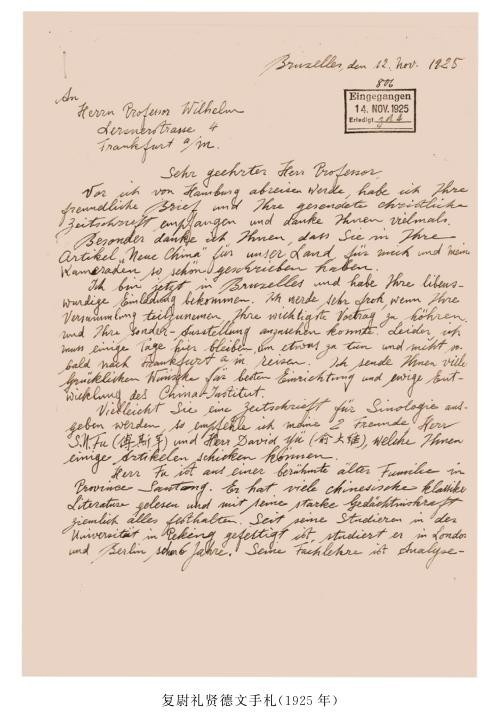 Bruxelles, den 12. Nov. 1925
806
Eingegangen
14. NOV. 1925
Erledigt
An
Herrn Professor Wilhelm
Lersnerstrasse 4
Frankfurt a/m.
Sehr geehrter Herr Professor,
Vor ich von Hamburg abreisen werde, habe ich Ihre
freundliche Brief und Ihre gesendete christliche
Zeitschrift empfangen und danke Ihnen vielmals.
Besonder danke ich Ihnen, dass Sie in Ihre
Artikel „Neue China" für unser Land, für mich und meine
Kameraden so schön geschrieben haben.
Ich bin jetzt in Bruxelles und habe Ihre liebens-
wurdige Einladung bekommen. Ich werde sehr froh, wenn Ihre
Versammlung teilzunemen, Ihre wichtigste Vortrag zu hohren,
und Ihre Sonder-Ausstellung anzusehen konnte. Leider ich
muss einige Tage hier bleiben, um etwas zu tun und nicht so
bald nach Frankfurt a/m reisen. Ich sende Ihnen viele
Grücklichen Wünsche für besten Einrichtung und ewige Ent-
wicklung des China-Institut.
Vielleicht Sie eine Zeitschrieft für Sinologie aus-
geben werden, so empfehle ich meine 2 Freunde, Herr
S.N.Fu (傅斯年) und Herr David Yü (俞大維), welche Ihnen
einige Artikelen schicken können.
Herr Fu ist aus einer berühmte alter Familie in
Province Santang. Er hat viele chinesische klassiker
Literature gelesen und mit seine starke Gedächtniskraft
ziemlich alles festhalten. Seit seine Studieren in der
Universität in Peking gefertigt ist, studiert er in London
und Berlin schon 6 Jahre. Seine Fachlehre ist Analyse-
复尉礼贤德文手札(1925 年)